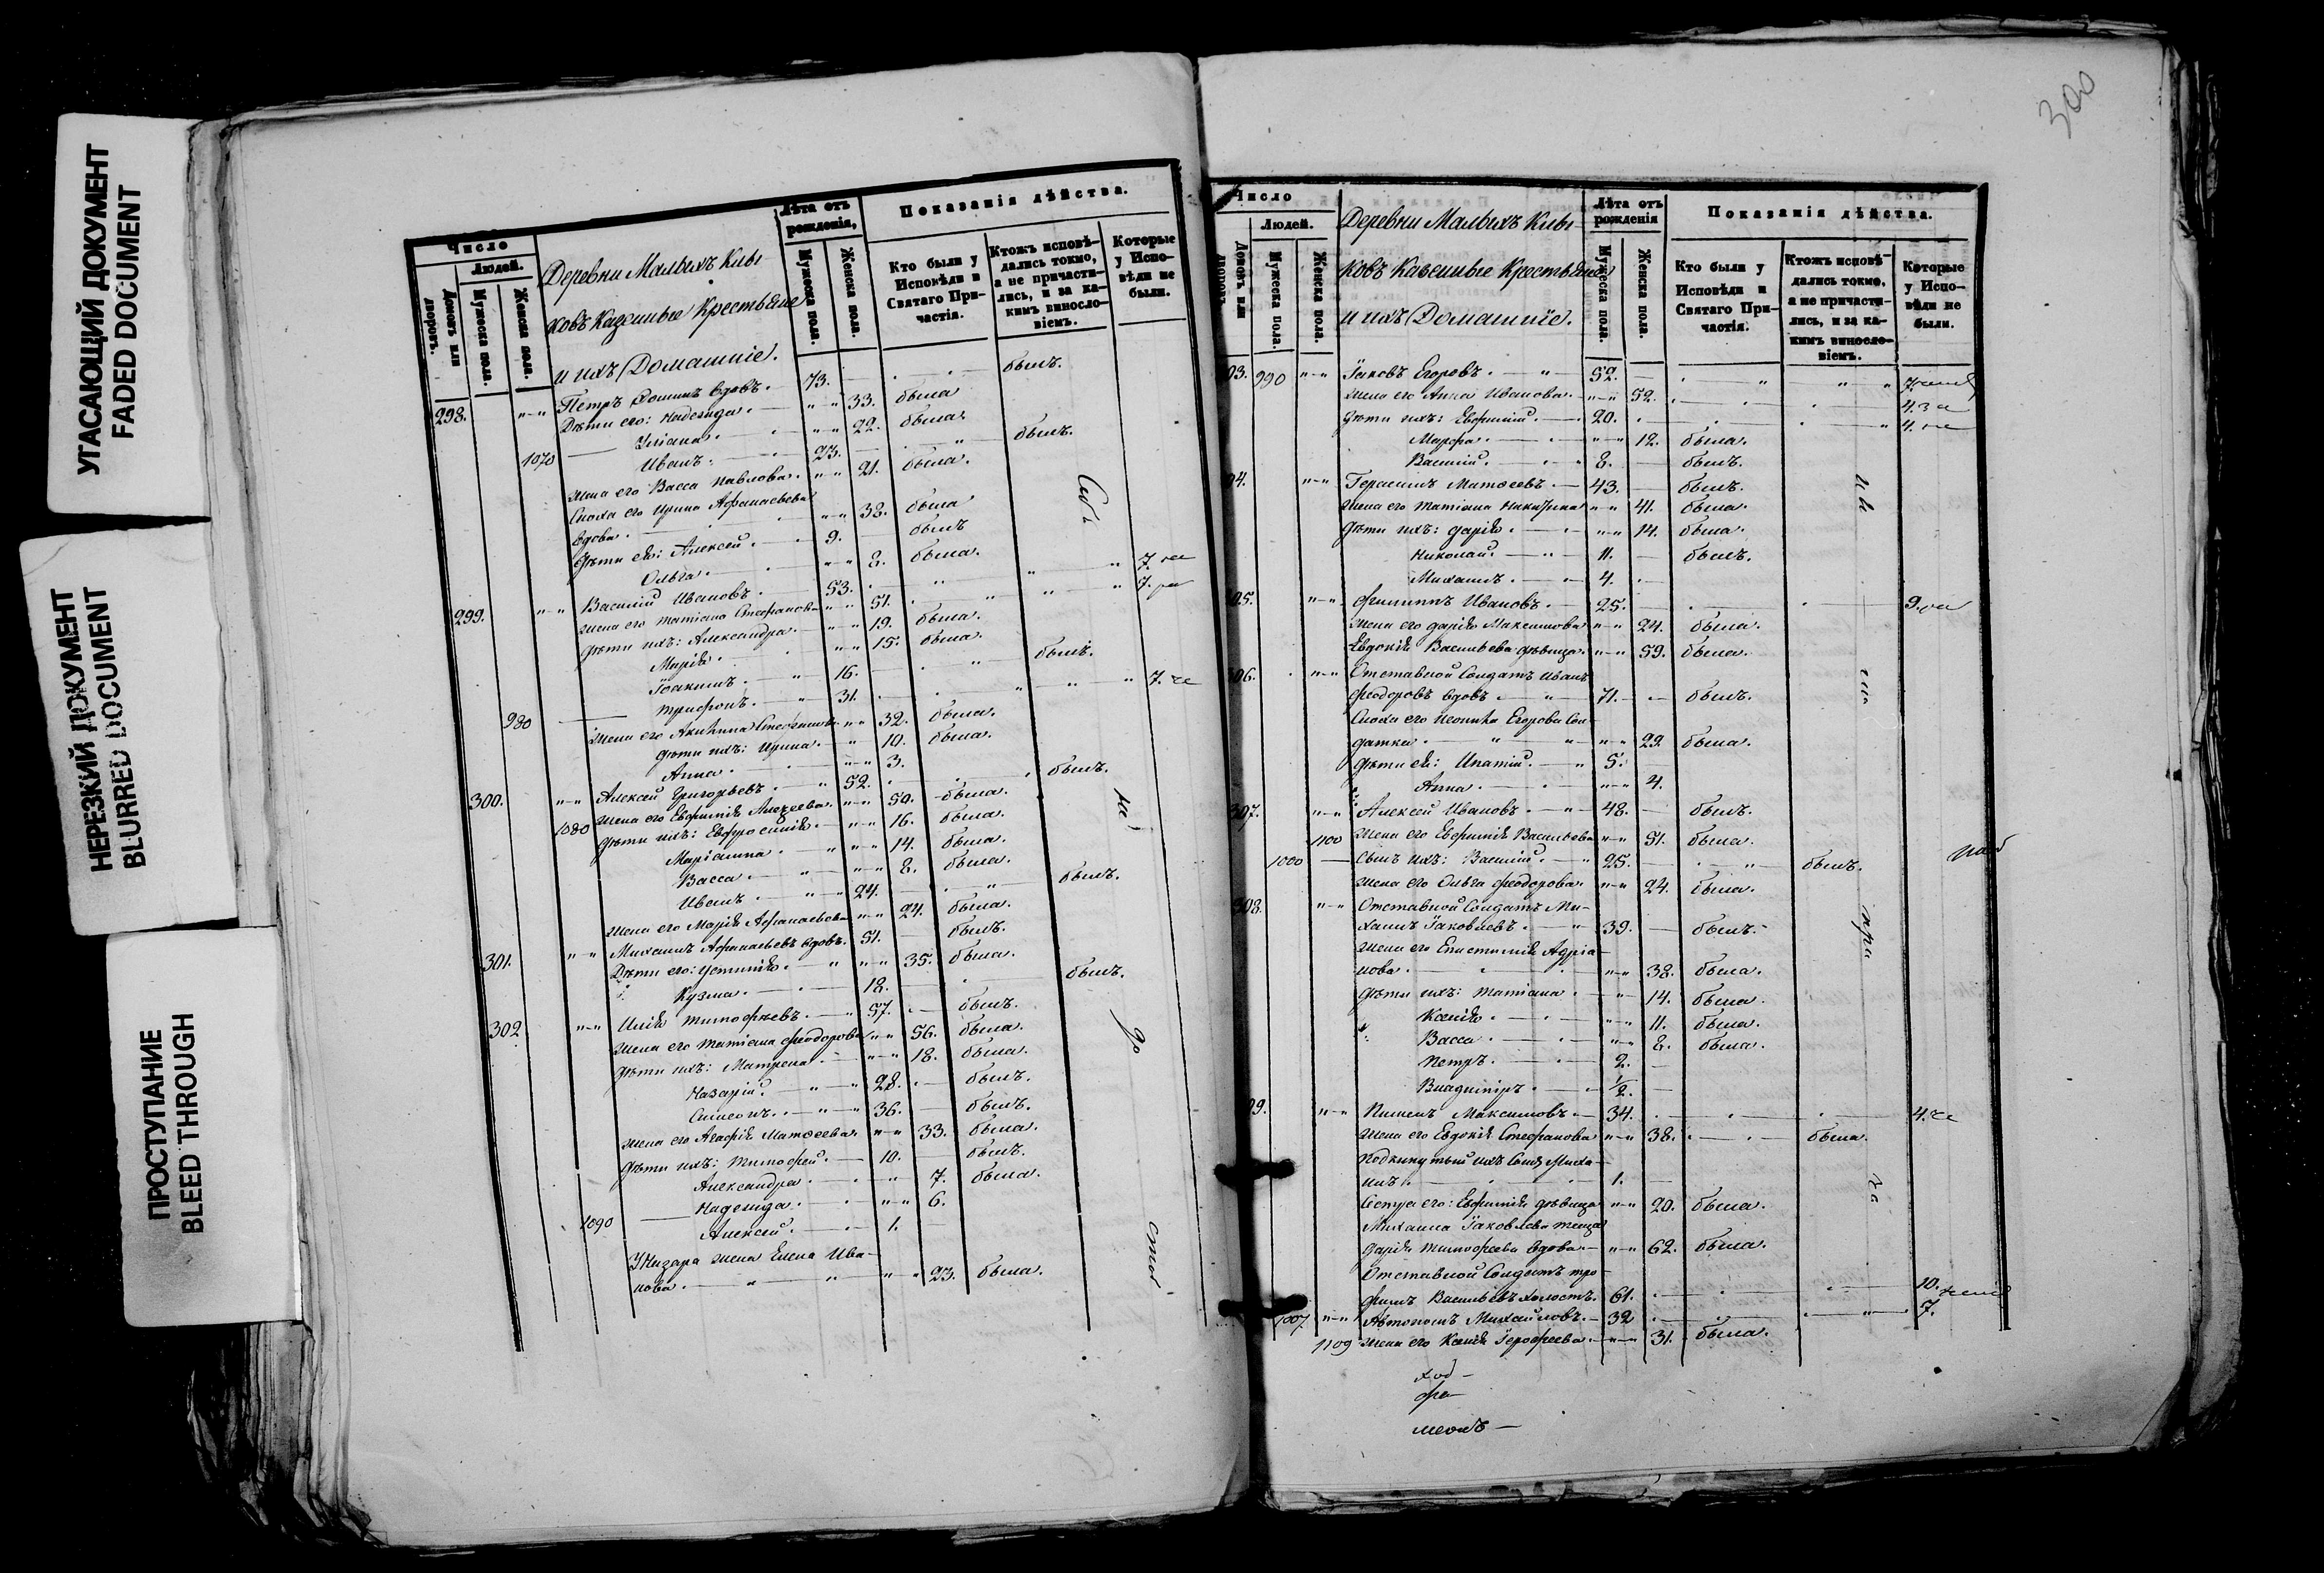 УГАСАЮЩИЙ ДОКУМЕНТ
FADED DOCUMENT
НЕРЕЗКИЙ ДОКУМЕНТ
BLURRED DOCUMENT
ПРОСТУПАНИЕ
BLEED THROUGH
Число
Людей.
Домовъ или дворовъ.
Мужеска пола.
Женска пола.
Деревни Малыхъ Кивы
ковъ Казенные Крестьяне
и ихъ Домашніе.
Лѣта отъ рожденія,
Мужеска пола.
Женска пола.
Показанія дѣйства.
Кто были у Исповѣди и Святаго При-частія.
Ктожъ исповѣ-дались токмо, а не причасти-лись, и за ка-кимъ винослo-віемъ.
Которые у Испо-вѣди не были.
298. Петръ Ѳоминъ вдовъ. 73. былъ.
Дѣти его: Надежда. 33. была
1070 Уліана. 22. была.
Иванъ. 23. былъ.
жена его Васса Павлова. 21. была.
Сноха его Ирина Афанасьева
вдова. 38. была
Дѣти ея: Алексей. 9. былъ
Ольга. 8. была.
299. Василій Ивановъ. 53. 7.
жена его Татіана Стефанов 51. 7.
дѣти ихъ: Александра. 19. была.
Марія. 15. была.
Іоакимъ. 16. былъ.
980 Трифонъ. 31. 7.
Жена его Акилина 32. была.
дѣти ихъ: Ирина. 10. была.
Анна. 3.
300. Алексей Григорьевъ. 52. былъ.
1080 Жена его Евфимія Алексеева 50. была.
Дѣти ихъ: Евфросинія. 16. была.
Маріамна. 14. была.
Васса. 8. была.
Иванъ. 24. былъ.
Жена его Марія Афанасьева 24. была.
301. Михаилъ Афанасьевъ вдовъ. 51. былъ.
Дѣти его: Устинія. 35. была.
Кузма. 18. былъ.
302 Илія Тимофѣевъ. 57. былъ.
Жена его Татіана Феодорова 56. была.
Дѣти ихъ: Матрена. 18. была.
Назарій. 28. былъ.
Симеонъ. 36. былъ.
жена его Агафія Матѳеева. 33. была.
Дѣти ихъ: Тимофей. 10. былъ.
Александра. 7. была.
1090 Надежда. 6.
Алексей. 1.
У Назара жена Елена Ива-
нова. 23. была.
300
Число
Людей.
Домовъ или дворовъ.
Мужеска пола.
Женска пола.
Деревни Малыхъ Кивы-
ковъ Казенные Крестьяне
и ихъ Домашніе.
Лѣта отъ рожденія
Мужеска пола.
Женска пола.
Показанія дѣйства.
Кто были у Исповѣди и Святаго При-частія.
Ктожъ исповѣ-дались токмо, а не причасти-лись, и за ка-кимъ винослo-віемъ.
Которые у Испо-вѣди не были.
03. 990 Іаковъ Егоровъ. 52. 7.
жена его Анна Иванова. 52. 4.
Дѣти ихъ: Евфимій. 20. 4.
Марфа. 12. была.
Василій. 8. былъ.
04. Герасимъ Матѳеевъ. 43. былъ.
Жена его Татіана 41. была.
Дѣти ихъ: Дарія. 14. была.
Николай. 11. былъ.
Михаилъ. 4.
05. Филиппъ Ивановъ. 25. 9.
Жена его Дарія Максимова 24. была.
Евдокія Васильева дѣвица. 59. была.
306. Отставной Солдатъ Иванъ
Феодоровъ вдовъ. 71. былъ.
Сноха его Егорова Сол-
датка. 29. была.
Дѣти ея: Ипатій. 5.
Анна. 4.
307. Алексей Ивановъ. 48. былъ.
1100 Жена его Евфимія Васильева 51. была.
1000 Сынъ ихъ: Василій. 25. былъ.
Жена его Ольга Феодорова. 24. была.
308. Отставной Солдатъ Ми-
хаилъ Іаковлевъ. 39. былъ.
Жена его Епистимія Адріа-
нова. 38. была.
Дѣти ихъ: Татіана. 14. была.
Ксенія. 11. была.
Васса. 8. была.
Петръ. 2.
Владиміръ. 1/2.
09. Пименъ Максимовъ. 34. 4.
Жена его Евдокія Стефанова 38. была.
Подкинутый ихъ Сынъ Миха-
илъ. 1.
Сестра его: Евфимія дѣвица 20. была.
Михаила Іаковлева теща
Дарія Тимофеева вдова. 62. была.
Отставной Солдатъ Тро-
фимъ Васильевъ холостъ. 61. 10.
1007 Автономъ Михайловъ. 32 7.
1109 Жена его Ксенія Іерофеева. 31. была.